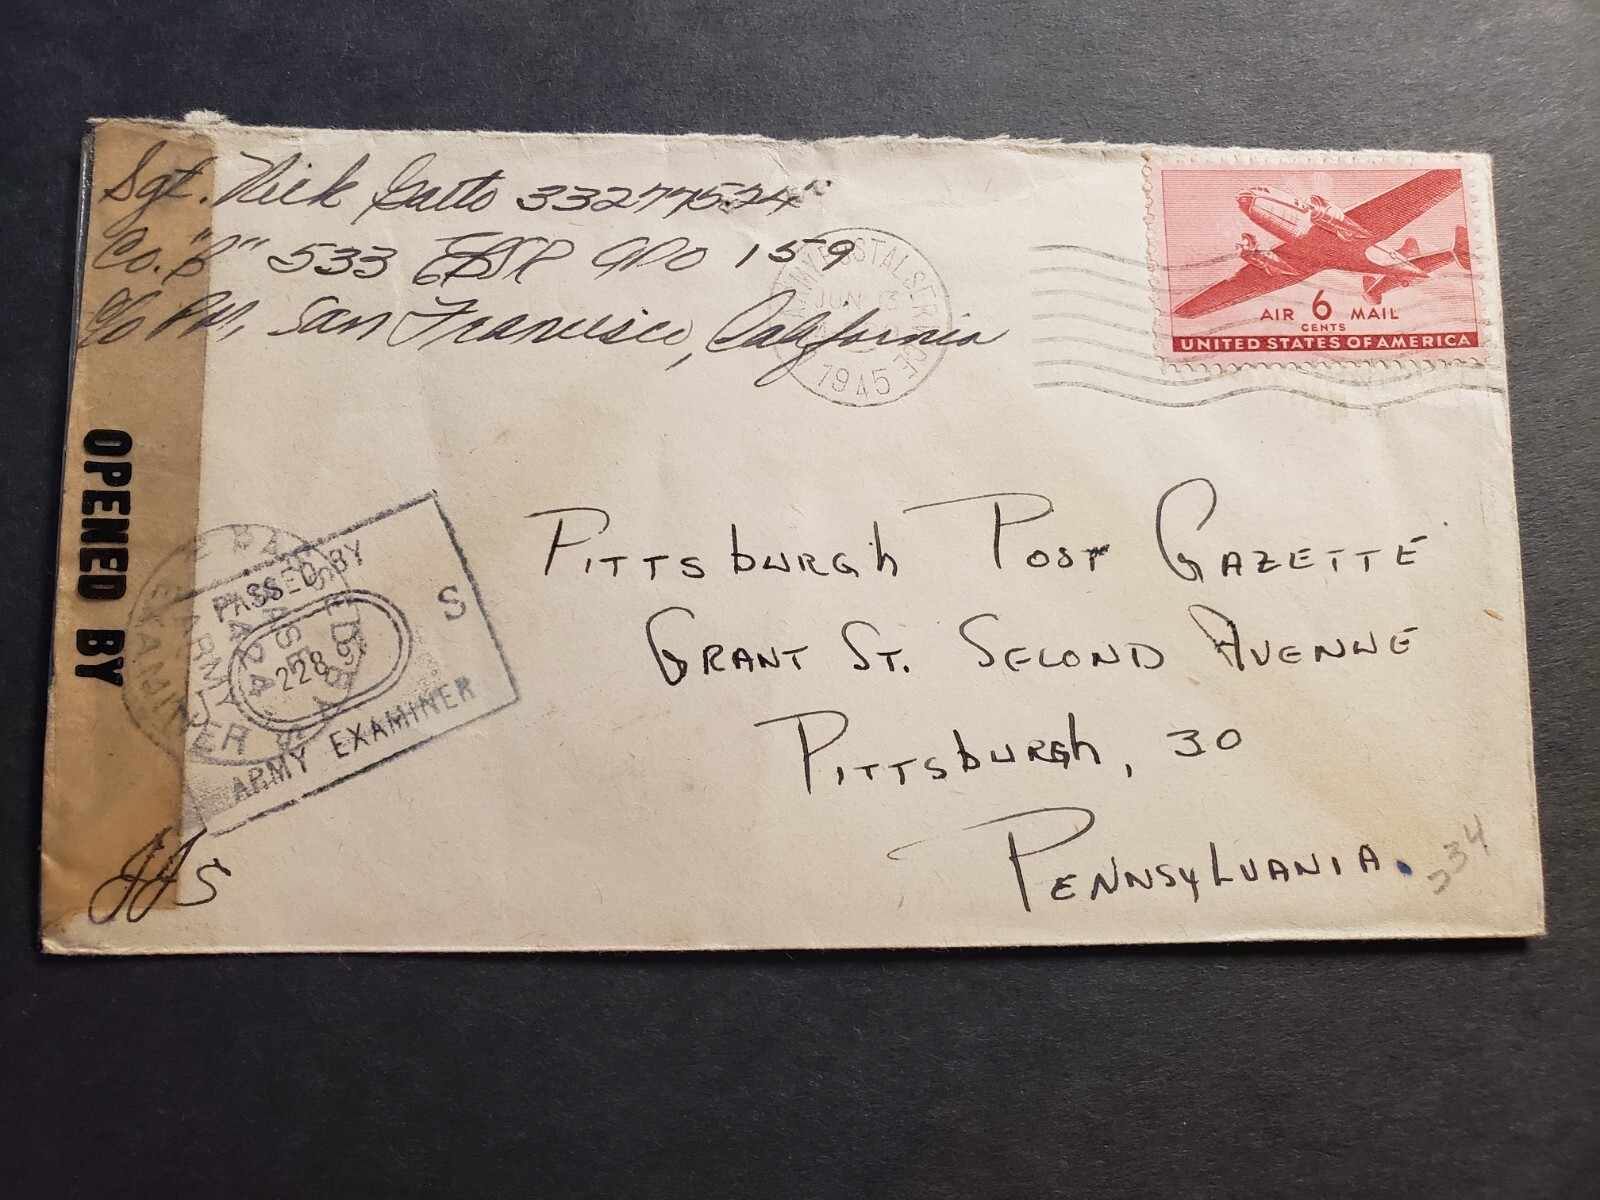 Sgt. Nick Gatto 33277524
Co. "B" 533 EBSR APO 159
c/o PM, San Francisco, California
ARMY POSTAL SERVICE
JUN 13
1945
AIR 6 MAIL
CENTS
UNITED STATES OF AMERICA
OPENED BY
PASSED BY
S
ARMY EXAMINER
PASSED
BASE
ARMY
EXAMINER
JJS
PITTSBURGH POST GAZETTE
GRANT ST. SECOND AVENUE
PITTSBURGH, 30
PENNSYLVANIA.